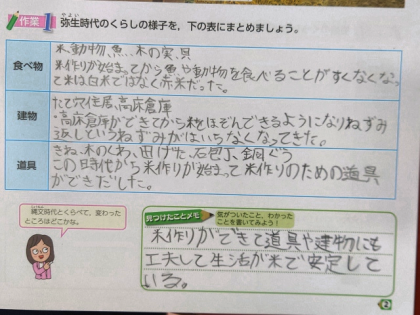 作業1 弥生時代のくらしの様子を，下の表にまとめましょう。
やよい
食べ物
米、動物、魚、木の実、貝
米作りが始まってから魚や動物を食べることがすくなくなっ
て米は白米ではなく赤米だった。
建物
たて穴住居、高床倉庫
・高床倉庫ができてから米をほぞんできるようになりねずみ
返しというねずみがはいらなくなってきた。
道具
きね、木のくわ、田げた、石包丁、銅たく
この時代から米作りが始まって米作りのための道具
ができだした。
縄文時代とくらべて，変わった
ところはどこかな。
見つけたことメモ
気がついたこと，わかった
ことを書いてみよう！
米作りができて道具や建物にも
工夫して生活が米で安定して
いる。
2